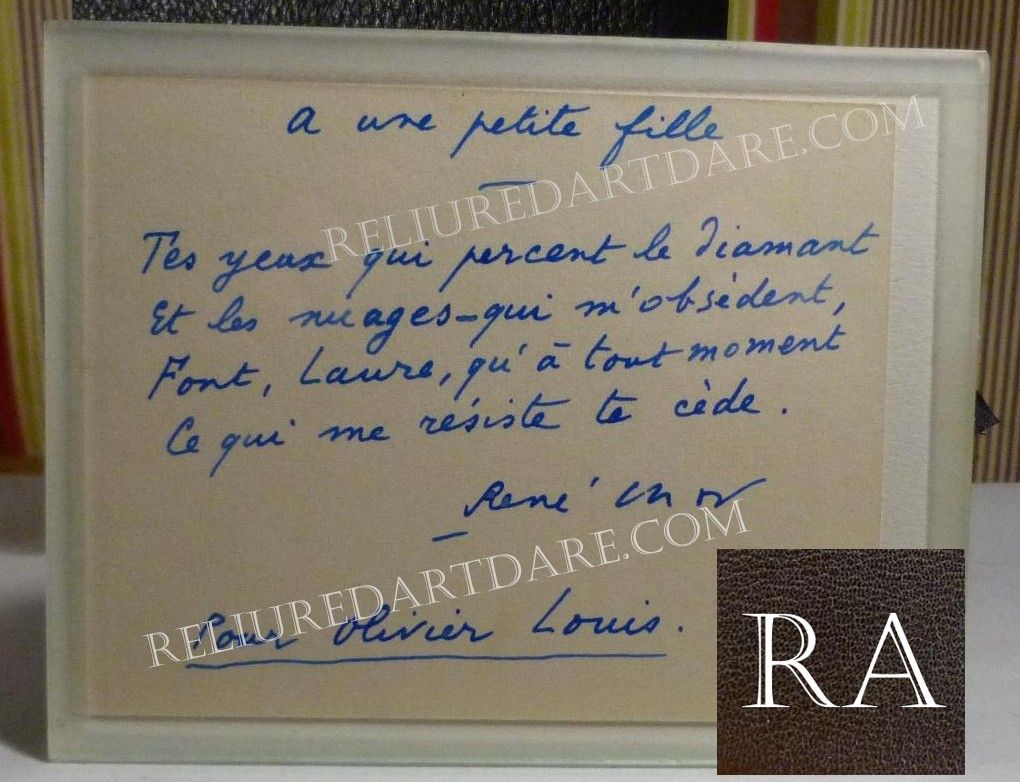 A une petite fille
Tes yeux qui percent le diamant
Et les nuages-qui m'obsèdent,
Font, Laure, qu'à tout moment
Ce qui me résiste te cède.
René Char
Pour Olivier Louis.
RELIUREDARTDARE.COM
RELIUREDARTDARE.COM
RA